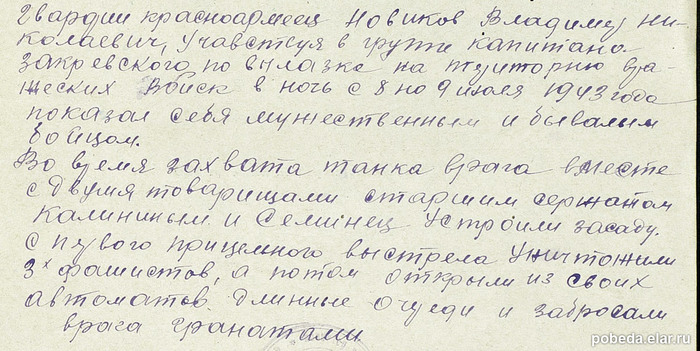 Гвардии красноармеец Новиков Владимир Ни-
колаевич, участвуя в группе капитана
Закревского по вылазке на территорию вра-
жеских войск в ночь с 8 на 9 июля 1943 года
показал себя мужественным и бывалым
бойцом.
Во время захвата танка врага вместе
с двумя товарищами старшим сержантом
Калининым и Семинец устроили засаду.
С первого прицельного выстрела уничтожили
3х фашистов, а потом открыли из своих
автоматов длинные очереди и забросали
врага гранатами.
pobeda.elar.ru